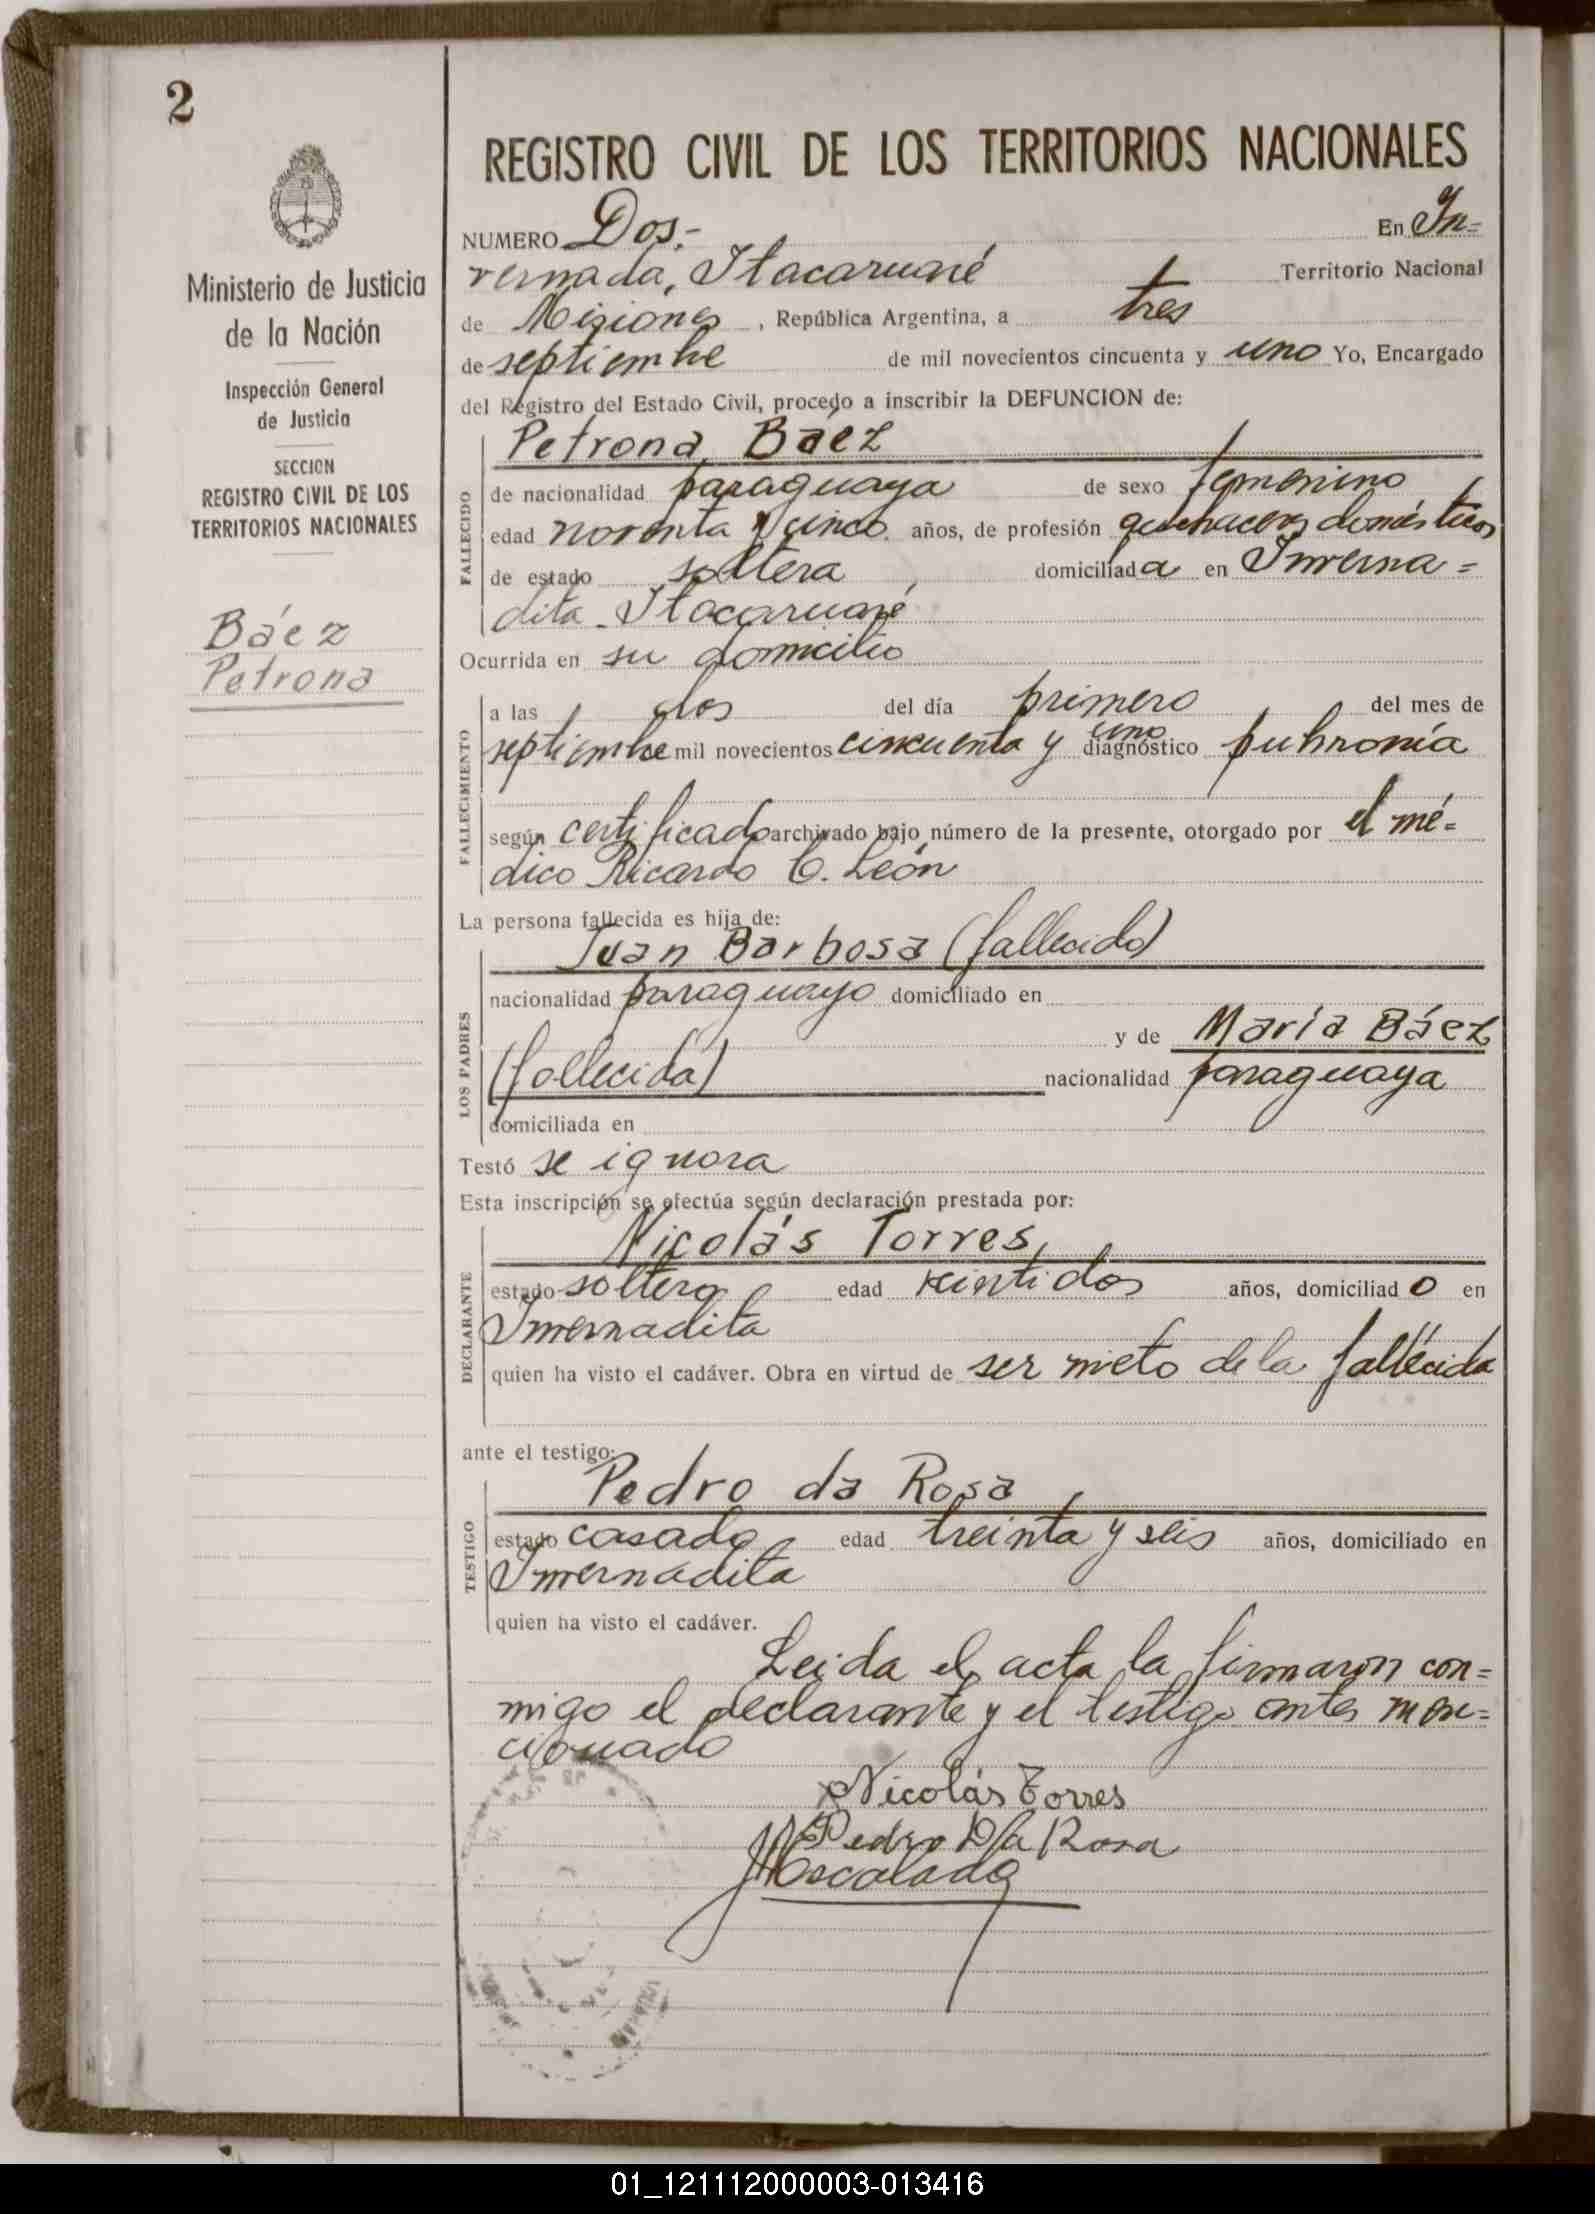 2
Ministerio de Justicia
de la Nación
Inspección General
de Justicia
SECCION
REGISTRO CIVIL DE LOS
TERRITORIOS NACIONALES
Báez
Petrona
REGISTRO CIVIL DE LOS TERRITORIOS NACIONALES
NUMERO Dos.- En In=
vernada, Itacaruaré Territorio Nacional
de Misiones, República Argentina, a tres
de septiembre de mil novecientos cincuenta y uno Yo, Encargado
del Registro del Estado Civil, procedo a inscribir la DEFUNCION de:
FALLECIDO
Petrona Báez
de nacionalidad paraguaya de sexo femenino,
edad noventa y cinco años, de profesión quehaceres domésticos
de estado soltera, domiciliada en Inverna=
dita - Itacaruaré
Ocurrida en su domicilio
FALLECIMIENTO
a las dos del día primero del mes de
septiembre mil novecientos cincuenta y uno diagnóstico pulmonía
según certificado archivado bajo número de la presente, otorgado por el mé=
dico Ricardo C. León
La persona fallecida es hija de:
LOS PADRES
Juan Barbosa (fallecido)
nacionalidad paraguayo domiciliado en
y de María Báez
(fallecida) nacionalidad paraguaya
domiciliada en
Testó se ignora
Esta inscripción se efectúa según declaración prestada por:
DECLARANTE
Nicolás Torres,
estado soltero, edad veintidos años, domiciliado en
Invernadita
quien ha visto el cadáver. Obra en virtud de ser nieto de la fallecida
ante el testigo:
TESTIGO
Pedro da Rosa,
estado casado, edad treinta y seis años, domiciliado en
Invernadita
quien ha visto el cadáver.
Leida el acta la firmaron con=
migo el declarante y el testigo antes men=
cionado
Nicolás Torres
Pedro Da Rosa
01_121112000003-013416